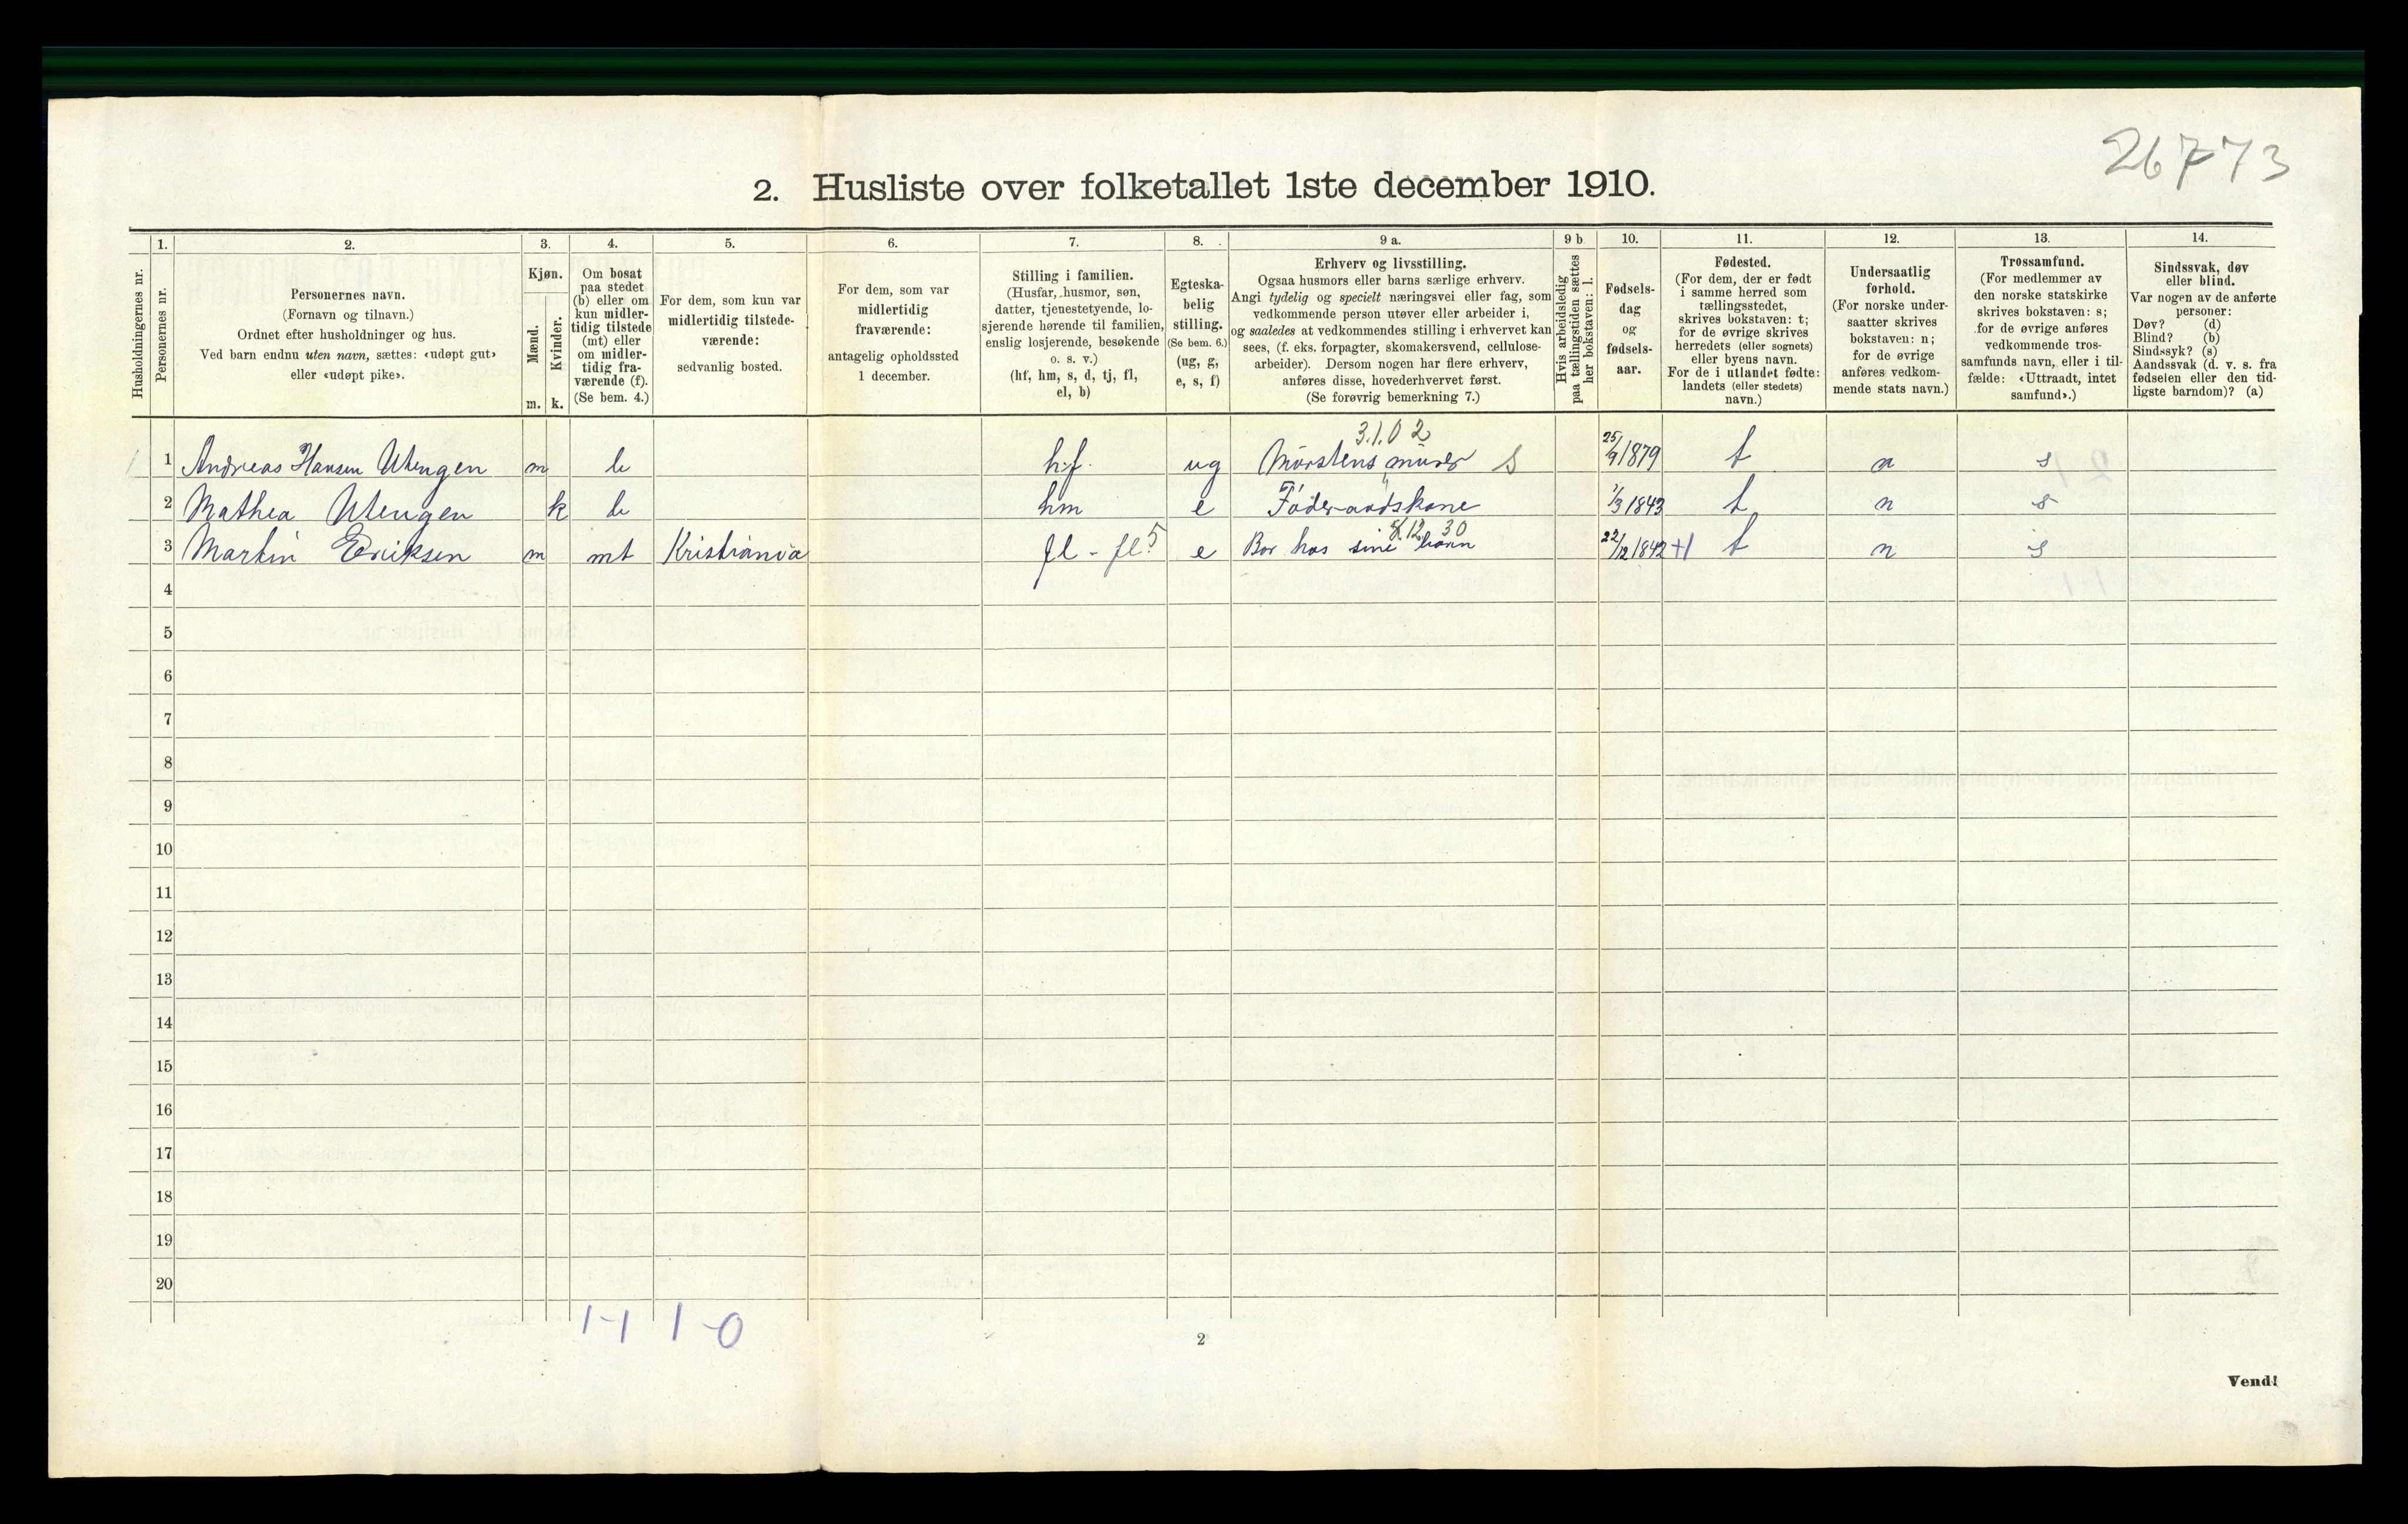 26773
2. Husliste over folketallet 1ste december 1910.
Husholdningernes nr.
1.
Personernes nr.
2.
Personernes navn.
(Fornavn og tilnavn.)
Ordnet efter husholdninger og hus.
Ved barn endnu uten navn, sættes: «udøpt gut»
eller «udøpt pike».
3.
Kjøn.
Mænd.
Kvinder.
m. k.
4.
Om bosat
paa stedet
(b) eller om
kun midler-
tidig tilstede
(mt) eller
om midler-
tidig fra-
værende (f).
(Se bem. 4.)
5.
For dem, som kun var
midlertidig tilstede-
værende:
sedvanlig bosted.
6.
For dem, som var
midlertidig
fraværende:
antagelig opholdssted
1 december.
7.
Stilling i familien.
(Husfar, husmor, søn,
datter, tjenestetyende, lo-
sjerende hørende til familien,
enslig losjerende, besøkende
o. s. v.)
(hf, hm, s, d, tj, fl,
el, b)
8.
Egteska-
belig
stilling.
(Se bem. 6.)
(ug, g,
e, s, f)
9 a.
Erhverv og livsstilling.
Ogsaa husmors eller barns særlige erhverv.
Angi tydelig og specielt næringsvei eller fag, som
vedkommende person utøver eller arbeider i,
og saaledes at vedkommendes stilling i erhvervet kan
sees, (f. eks. forpagter, skomakersvend, cellulose-
arbeider). Dersom nogen har flere erhverv,
anføres disse, hovederhvervet først.
(Se forøvrig bemerkning 7.)
9 b
Hvis arbeidsledig
paa tællingstiden sættes
her bokstaven: l.
10.
Fødsels-
dag
og
fødsels-
aar.
11.
Fødested.
(For dem, der er født
i samme herred som
tællingsstedet,
skrives bokstaven: t;
for de øvrige skrives
herredets (eller sognets)
eller byens navn.
For de i utlandet fødte:
landets (eller stedets)
navn.)
12.
Undersaatlig
forhold.
(For norske under-
saatter skrives
bokstaven: n;
for de øvrige
anføres vedkom-
mende stats navn.)
13.
Trossamfund.
(For medlemmer av
den norske statskirke
skrives bokstaven: s;
for de øvrige anføres
vedkommende tros-
samfunds navn, eller i til-
fælde: «Uttraadt, intet
samfund».)
14.
Sindssvak, døv
eller blind.
Var nogen av de anførte
personer:
Døv? (d)
Blind? (b)
Sindssyk? (s)
Aandssvak (d. v. s. fra
fødselen eller den tid-
ligste barndom)? (a)
3.1.0 2
1 Andreas Hansen Utengen m b hf. ug Murstens murer S 25/9 1879 t n s
2 Mathea Utengen k b hm e Føderaadskone 1/3 1843 t n s
8.12.30
3 Martin Eriksen m mt Kristiania fl - fl 5 e Bor hos sine barn 22/12 1842 +1 t n s
4
5
6
7
8
9
10
11
12
13
14
15
16
17
18
19
20
1-1 1-0
2
Vend!